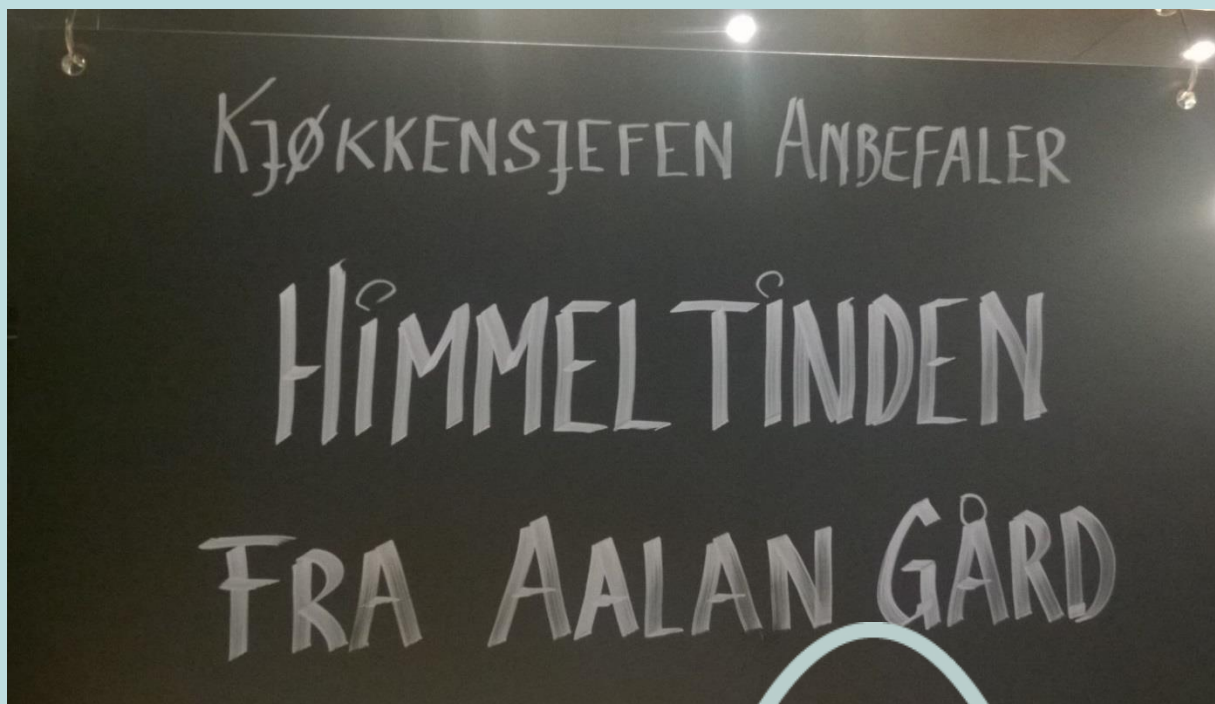 Kjøkkensjefen Anbefaler
Himmeltinden
Fra Aalan Gård